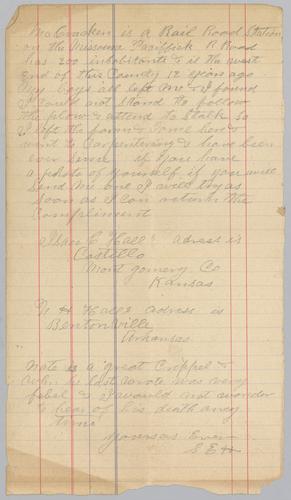 McCracken is a Rail Road Station
on the Missouri Paciffick R Road
has 200 inhabitants & is the west
End of this County 12 years ago
my boys all left me & I found
I could not Stand to follow
the plow & attend to Stalk So
I left the farm & Come here &
went to Carpentering & have been
ever Since if you have
a photo of yourself if you will
Send me one I will try as
soon as I can return the
Compliment
Hall adress is
Costello
Montgomery Co
Kansas
N H Halls adress is
Bentonville
Arkansas
Nate is a great Crippel &
when he last wrote was very
febel & I would not wonder
to hear of his death any
time
yourses Ever
S E H